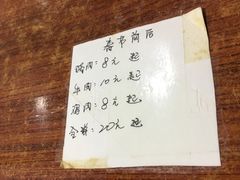 春节前后
鸡肉：8元 起
牛肉：10元 起
肉：8元 起
全鲜：20元 起